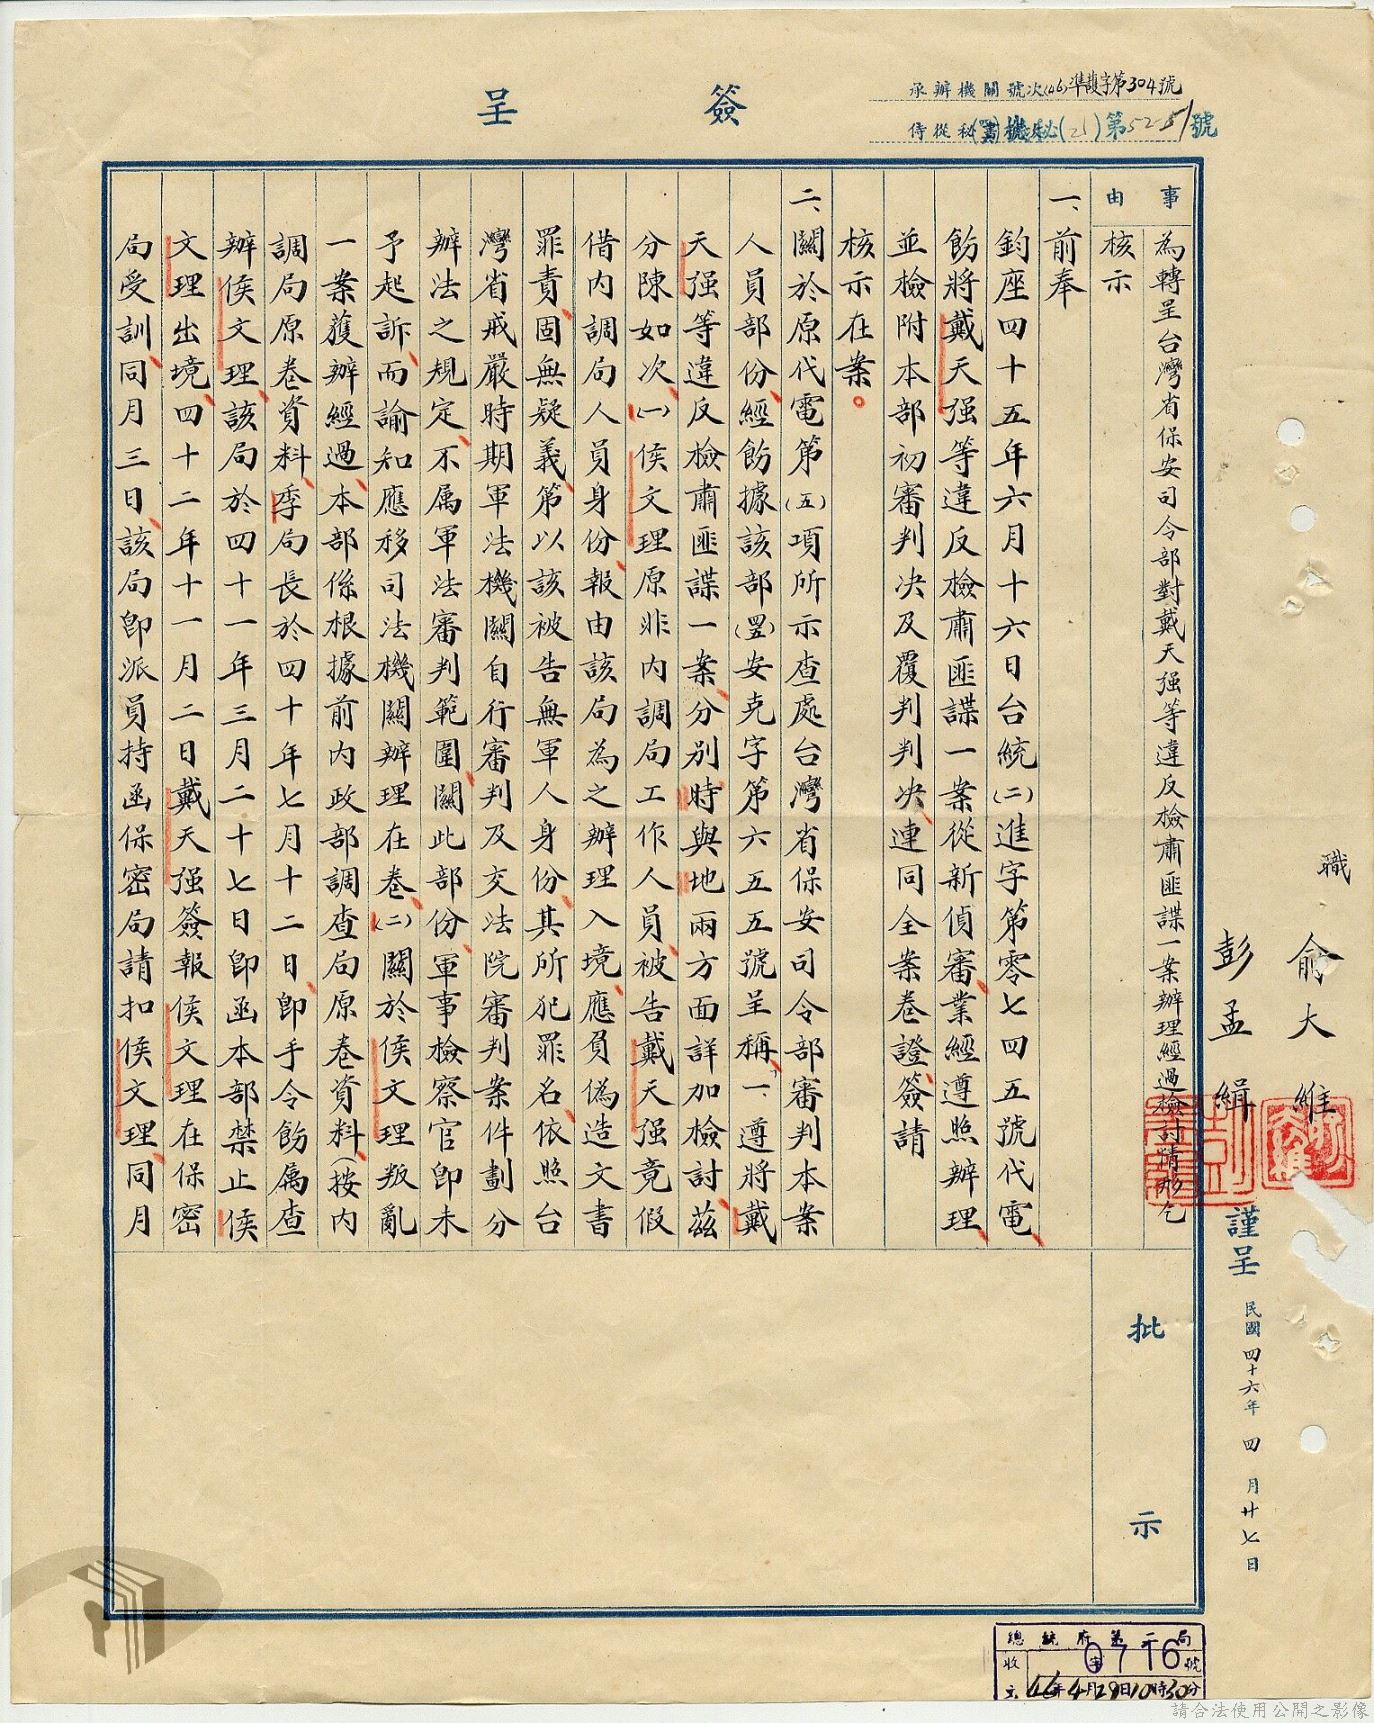 簽呈
承辦機關號次(46)準護字第304號
侍從秘(書)機秘(乙)第52-51號
職
俞大維
彭孟緝
謹呈
民國四十六年四月廿七日
事由
為轉呈台灣省保安司令部對戴天强等違反檢肅匪諜一案辦理經過檢討情形乞
核示
一、前奉
鈞座四十五年六月十六日台統(二)進字第零七四五號代電
飭將戴天强等違反檢肅匪諜一案從新偵審、業經遵照辦理、
並檢附本部初審判决及覆判判决、連同全案卷證、簽請
核示在案。
二、關於原代電第(五)項所示查處台灣省保安司令部審判本案
人員部份、經飭據該部(罡)安克字第六五五號呈稱、「一、遵將戴
天强等違反檢肅匪諜一案、分別時與地兩方面詳加檢討、茲
分陳如次、(一)侯文理原非內調局工作人員、被告戴天强竟假
借內調局人員身份、報由該局為之辦理入境、應負偽造文書
罪責、固無疑義、第以該被告無軍人身份、其所犯罪名、依照台
灣省戒嚴時期軍法機關自行審判及交法院審判案件劃分
辦法之規定、不屬軍法審判範圍、關此部份、軍事檢察官卽未
予起訴、而諭知應移司法機關辦理在卷、(二)關於侯文理叛亂
一案蒦辦經過、本部係根據前內政部調查局原卷資料、(按內
調局原卷資料、季局長於四十年七月十二日、卽手令飭屬查
辦侯文理、該局於四十一年三月二十七日卽函本部禁止侯
文理出境、四十二年十一月二日戴天强簽報侯文理在保密
局受訓、同月三日、該局卽派員持函保密局請扣侯文理、同月
批示
總統府第二局
收文 字0716號
46年4月29日10時30分
請合法使用公開之影像